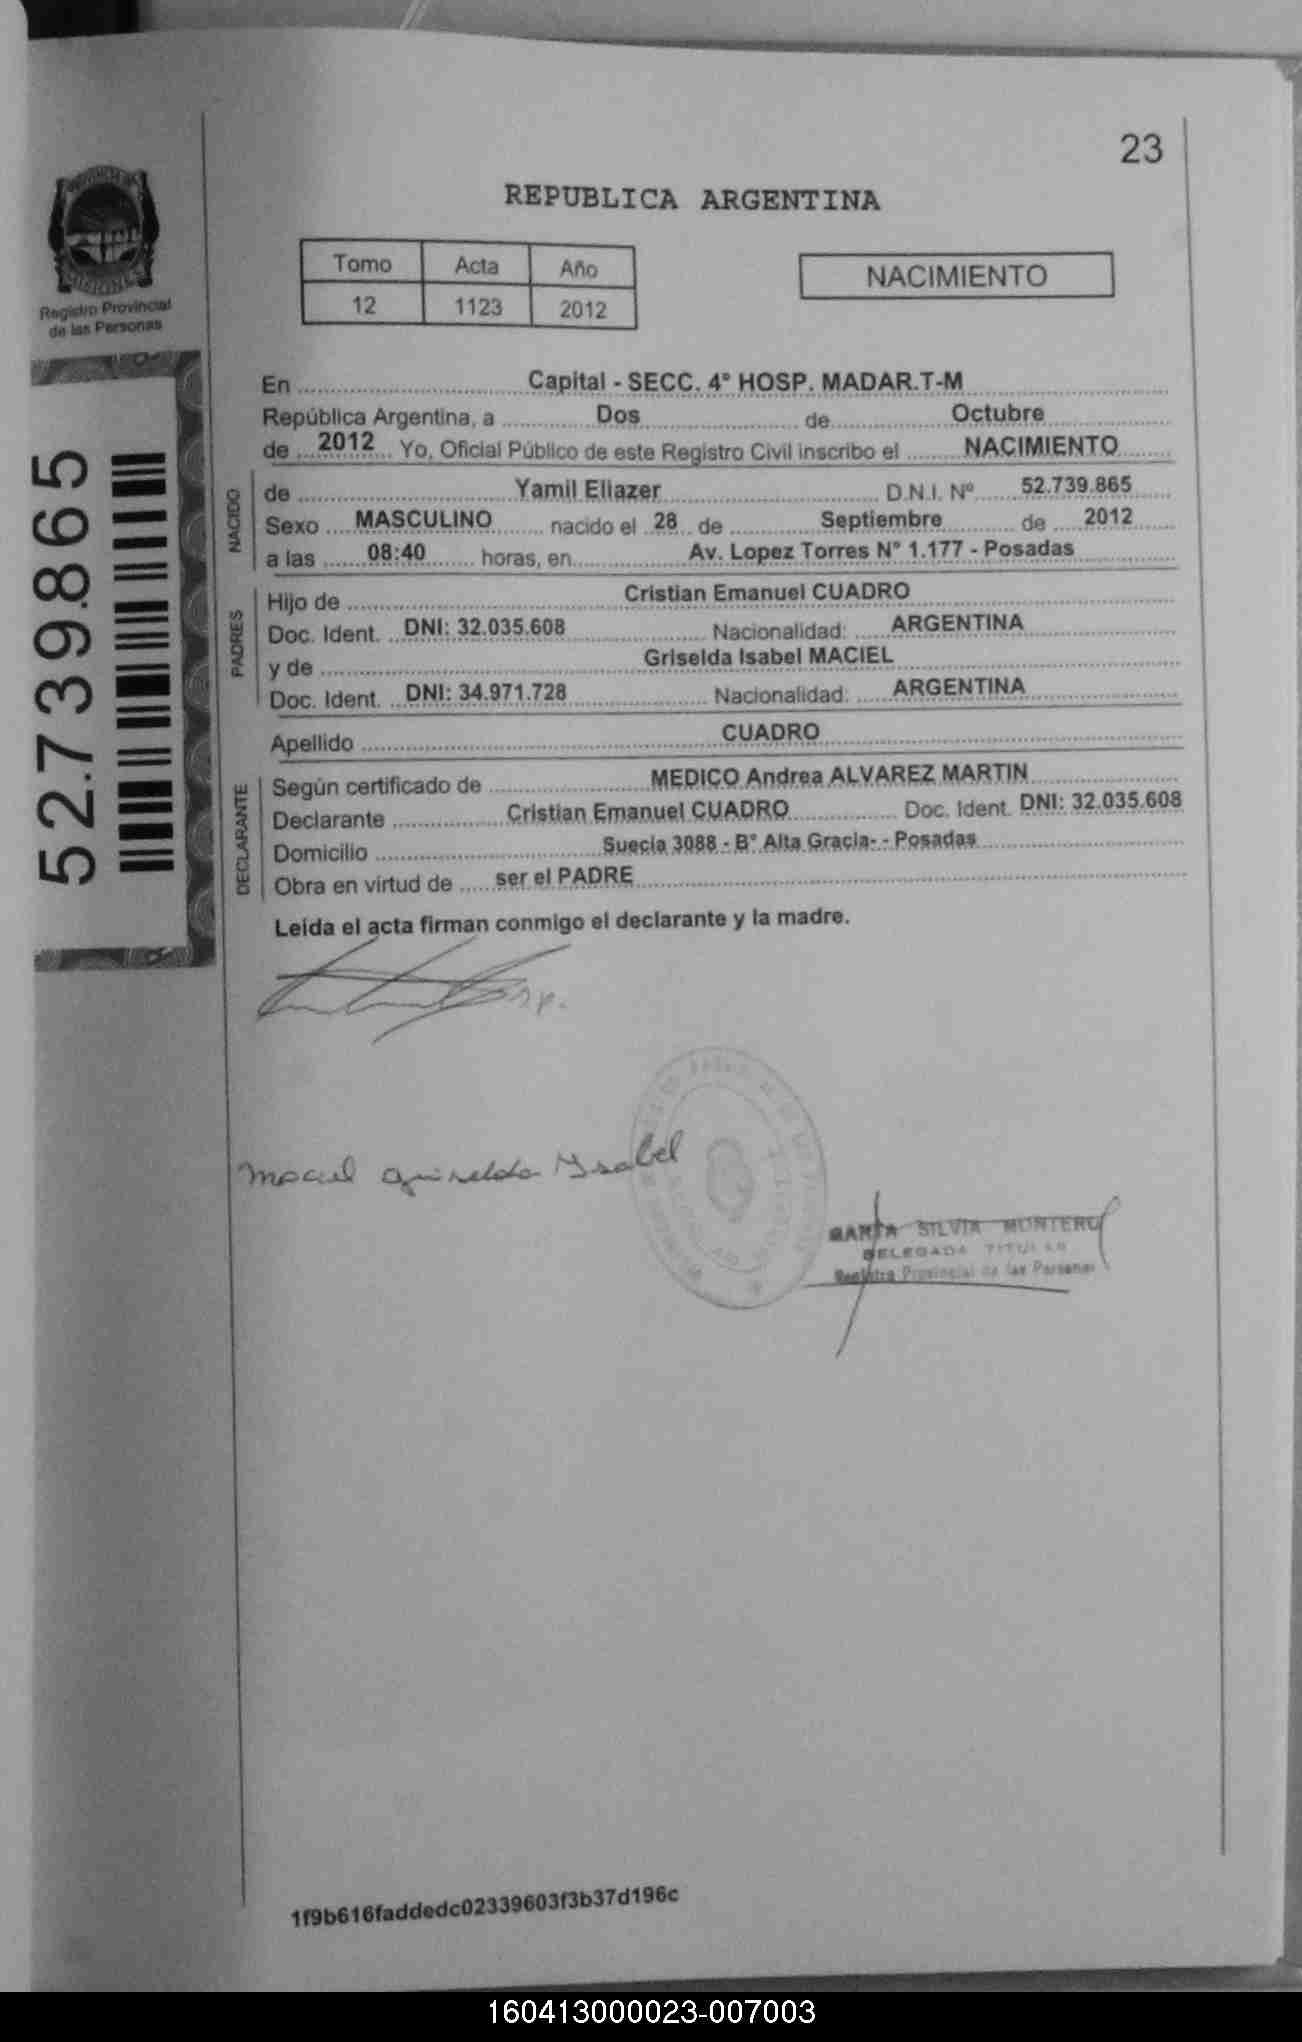 23
PROVINCIA DE
MISIONES
Registro Provincial
de las Personas
52.739.865
REPUBLICA ARGENTINA
Tomo Acta Año
12 1123 2012
NACIMIENTO
En Capital - SECC. 4° HOSP. MADAR.T-M
República Argentina, a Dos de Octubre
de 2012 Yo, Oficial Público de este Registro Civil inscribo el NACIMIENTO
NACIDO
de Yamil Eliazer D.N.I. Nº 52.739.865
Sexo MASCULINO nacido el 28 de Septiembre de 2012
a las 08:40 horas, en Av. Lopez Torres N° 1.177 - Posadas
PADRES
Hijo de Cristian Emanuel CUADRO
Doc. Ident. DNI: 32.035.608 Nacionalidad: ARGENTINA
y de Griselda Isabel MACIEL
Doc. Ident. DNI: 34.971.728 Nacionalidad: ARGENTINA
Apellido CUADRO
DECLARANTE
Según certificado de MEDICO Andrea ALVAREZ MARTIN
Declarante Cristian Emanuel CUADRO Doc. Ident. DNI: 32.035.608
Domicilio Suecia 3088 - B° Alta Gracia- - Posadas
Obra en virtud de ser el PADRE
Leída el acta firman conmigo el declarante y la madre.
Maciel Griselda Ysabel
MARTA SILVIA MONTERO
DELEGADA TITULAR
Registro Provincial de las Personas
1f9b616faddedc02339603f3b37d196c
160413000023-007003